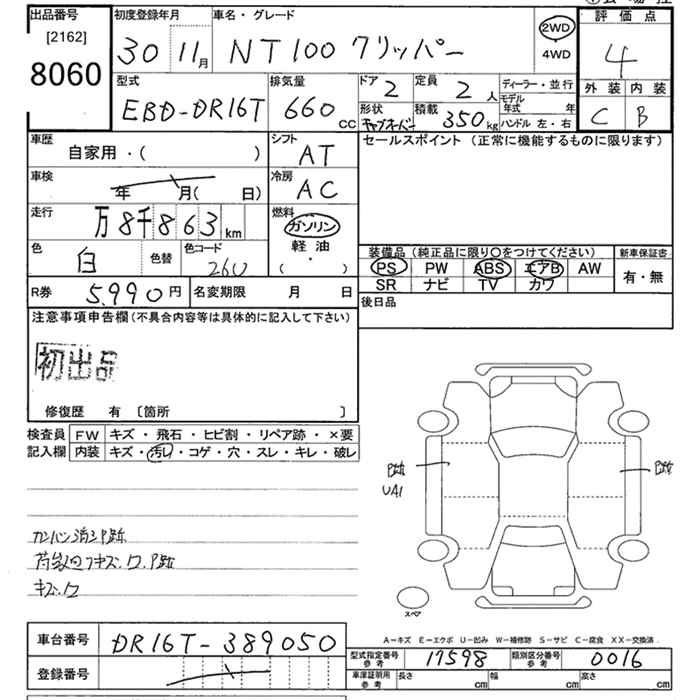 出品番号 [2162] 8060
初度登録年月 30 11月
車名・グレード NT100 クリッパー
2WD
4WD
評価点 4
型式 EBD-DR16T
排気量 660 CC
ドア 2
定員 2人
ディーラー・並行
モデル年式 年
ハンドル 左・右
形状 キャブオーバー
積載 350kg
外装 C
内装 B
車歴 自家用・( )
シフト AT
セールスポイント(正常に機能するものに限ります)
車検 年 月( 日)
冷房 AC
走行 万8千863km
燃料 ガソリン
軽油・
( )
色 白
色替
色コード 260
装備品(純正品に限り○をつけてください)
PS PW ABS エアB AW
SR ナビ TV カワ
新車保証書
有・無
R券 5,990円
名変期限 月 日
後日品
注意事項申告欄(不具合内容等は具体的に記入して下さい)
初出品
修復歴 有 〔箇所 〕
検査員記入欄
FW キズ・飛石・ヒビ割・リペア跡・×要
内装 キズ・汚レ・コゲ・穴・スレ・キレ・破レ
P跡
UA1
P跡
カンバン消シP跡
キズ、ワ
スペア
A-キズ E-エクボ U-凹み W-補修跡 S-サビ C-腐食 XX-交換済
車台番号 DR16T-389050
登録番号
型式指定番号 参考 17598
類別区分番号 参考 0016
車庫証明用 参考 長さ cm 幅 cm 高さ cm